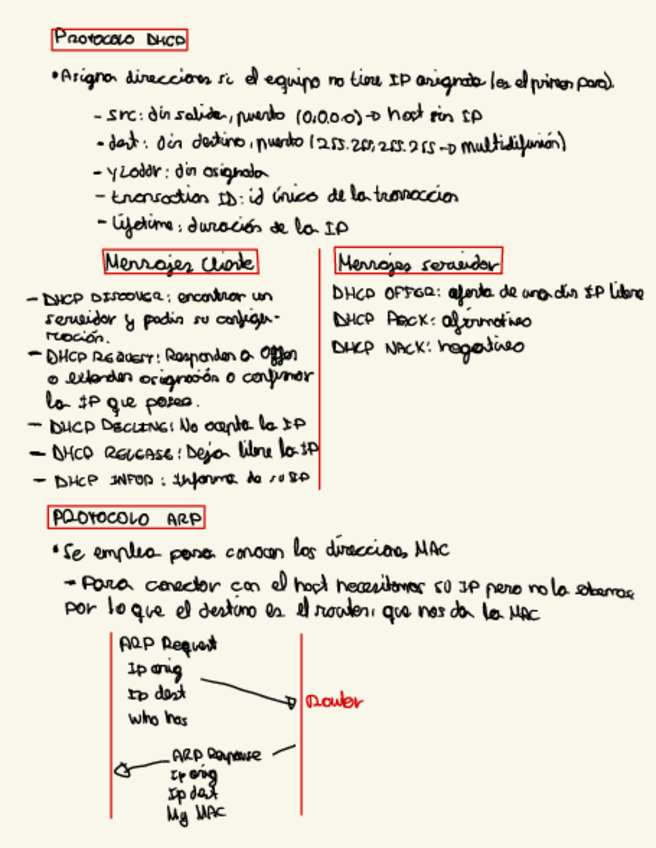 PROTOCOLO DHCP
• Asigna direcciones si el equipo no tiene IP asignata (es el primer paso).
- src: dir salida, puerto (0.0.0.0) → host sin IP
- dest: dir destino, puerto (255.255.255.255 → multidifusión)
- yiaddr: dir asignada
- transaction ID: id único de la transacción
- lifetime: duración de la IP
Mensajes Cliente
- DHCP DISCOVER: encontrar un
servidor y pedir su configu-
ración.
- DHCP REQUEST: Responder a Offer
o extender asignación o confirmar
la IP que posee.
- DHCP DECLINE: No acepta la IP
- DHCP RELEASE: Dejar libre la IP
- DHCP INFOR: Informa de su IP
Mensajes servidor
DHCP OFFER: oferta de una dir IP libre
DHCP PACK: afirmativo
DHCP NACK: negativo
PROTOCOLO ARP
• Se emplea para conocer las direcciones MAC
- Para conectar con el host necesitamos su IP pero no la sabemos
por lo que el destino es el router, que nos da la MAC
ARP Request
Ip orig
Ip dest
Who has
Router
ARP Response
Ip orig
Ip dest
My MAC